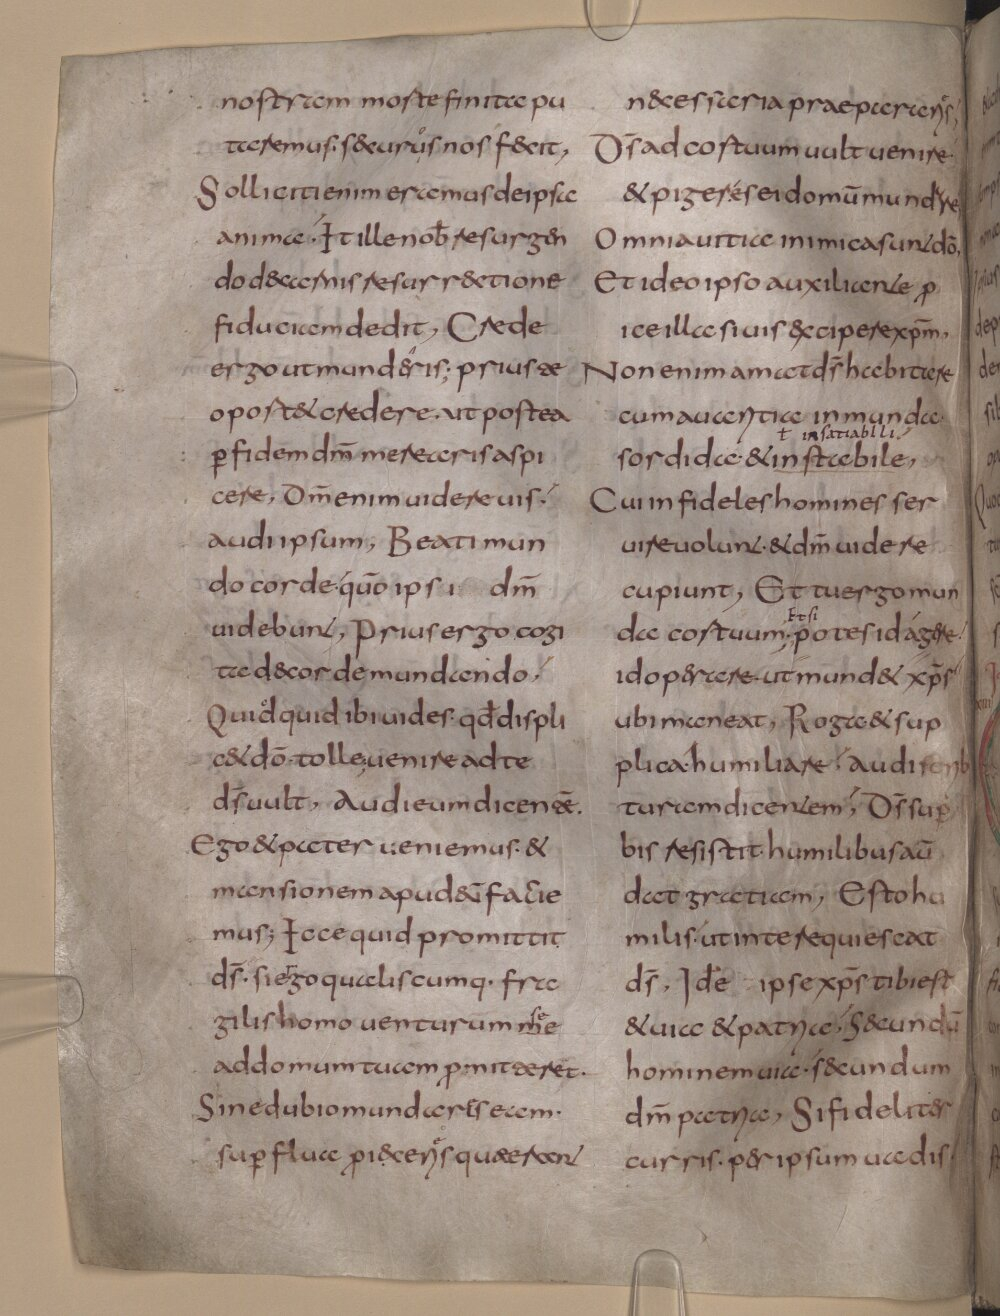 nostram morte finita pu
taremus· securus nos fecit,
Solliciti enim eramus de ipsa
anima· Et ille nob̄ resurgen
do de aeternis resurrectione
fiduciam dedit, Crede
ergo ut munderis; prius ae
oportet credere, ut postea
ꝑ fidem dm̄ merearis aspi
cere, Dm̄ enim videre vis·
audi ipsum, Beati mun
do corde· qūo ipsi dm̄
videbunt, Prius ergo cogi
ta de corde mundando,
Quidquid ibi vides· qd̄ displi
cet dō· tolle, venire ad te
ds̄ vult, Audi eum dicentē.
Ego & pater veniemus· &
mansionem apud eū facie
mus; Ecce quid promittit
ds̄· si ergo qualiscumq· fra
gilis homo venturum me se
ad domum tuam ꝓmitteret·
Sine dubio mundares eam·
suꝑflua ꝓiceres quaereres
necessaria praepararens,
Ds̄ ad cor tuum vult venire
& pigeres ei domū mundare
Omnia vitia inimica sunt dō,
Et ideo ipso auxiliante ꝓ
ice illa si vis excipere xp̄m,
Non enim amat ds̄ habitare
cum avaritia inmunda
ł insatiablli
sordida· & instabile,
Cui infideles homines ser
vire volunt· & dm̄ videre
cupiunt, Et tu ergo mun
Et si
da cor tuum· potes id agere
id operare· ut mundet xp̄s
ubi maneat, Roga & sup
plica· humiliare· audi scrib
turam dicentem, Ds̄ suꝑ
bis resistit· humilibus aū
dat gratiam, Esto hu
milis· ut in te requiescat
ds̄, Ide ipse xp̄s tibi est
& via & patria, Secundū
hominem via· secundum
dm̄ patria, Si fideliter
curris· per ipsum vadis